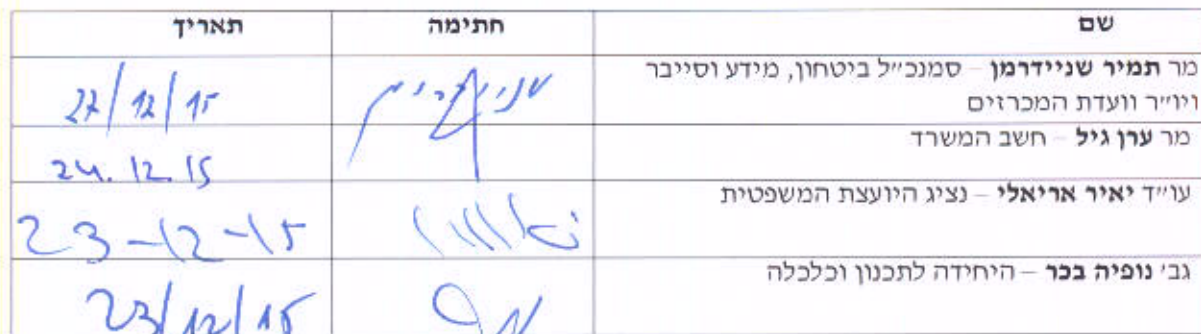 שם חתימה תאריך
מר תמיר שניידרמן – סמנכ״ל ביטחון, מידע וסייבר
ויו״ר וועדת המכרזים
27/12/15
מר ערן גיל – חשב המשרד
24.12.15
עו״ד יאיר אריאלי – נציג היועצת המשפטית
23-12-15
גב׳ נופיה בכר – היחידה לתכנון וכלכלה
23/12/15